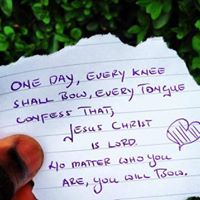 ONE DAY, EVERY KNEE
SHALL BOW, EVERY TONGUE
CONFESS THAT;
JESUS CHRIST
IS LORD.
NO MATTER WHO YOU
ARE, YOU WILL BOW.